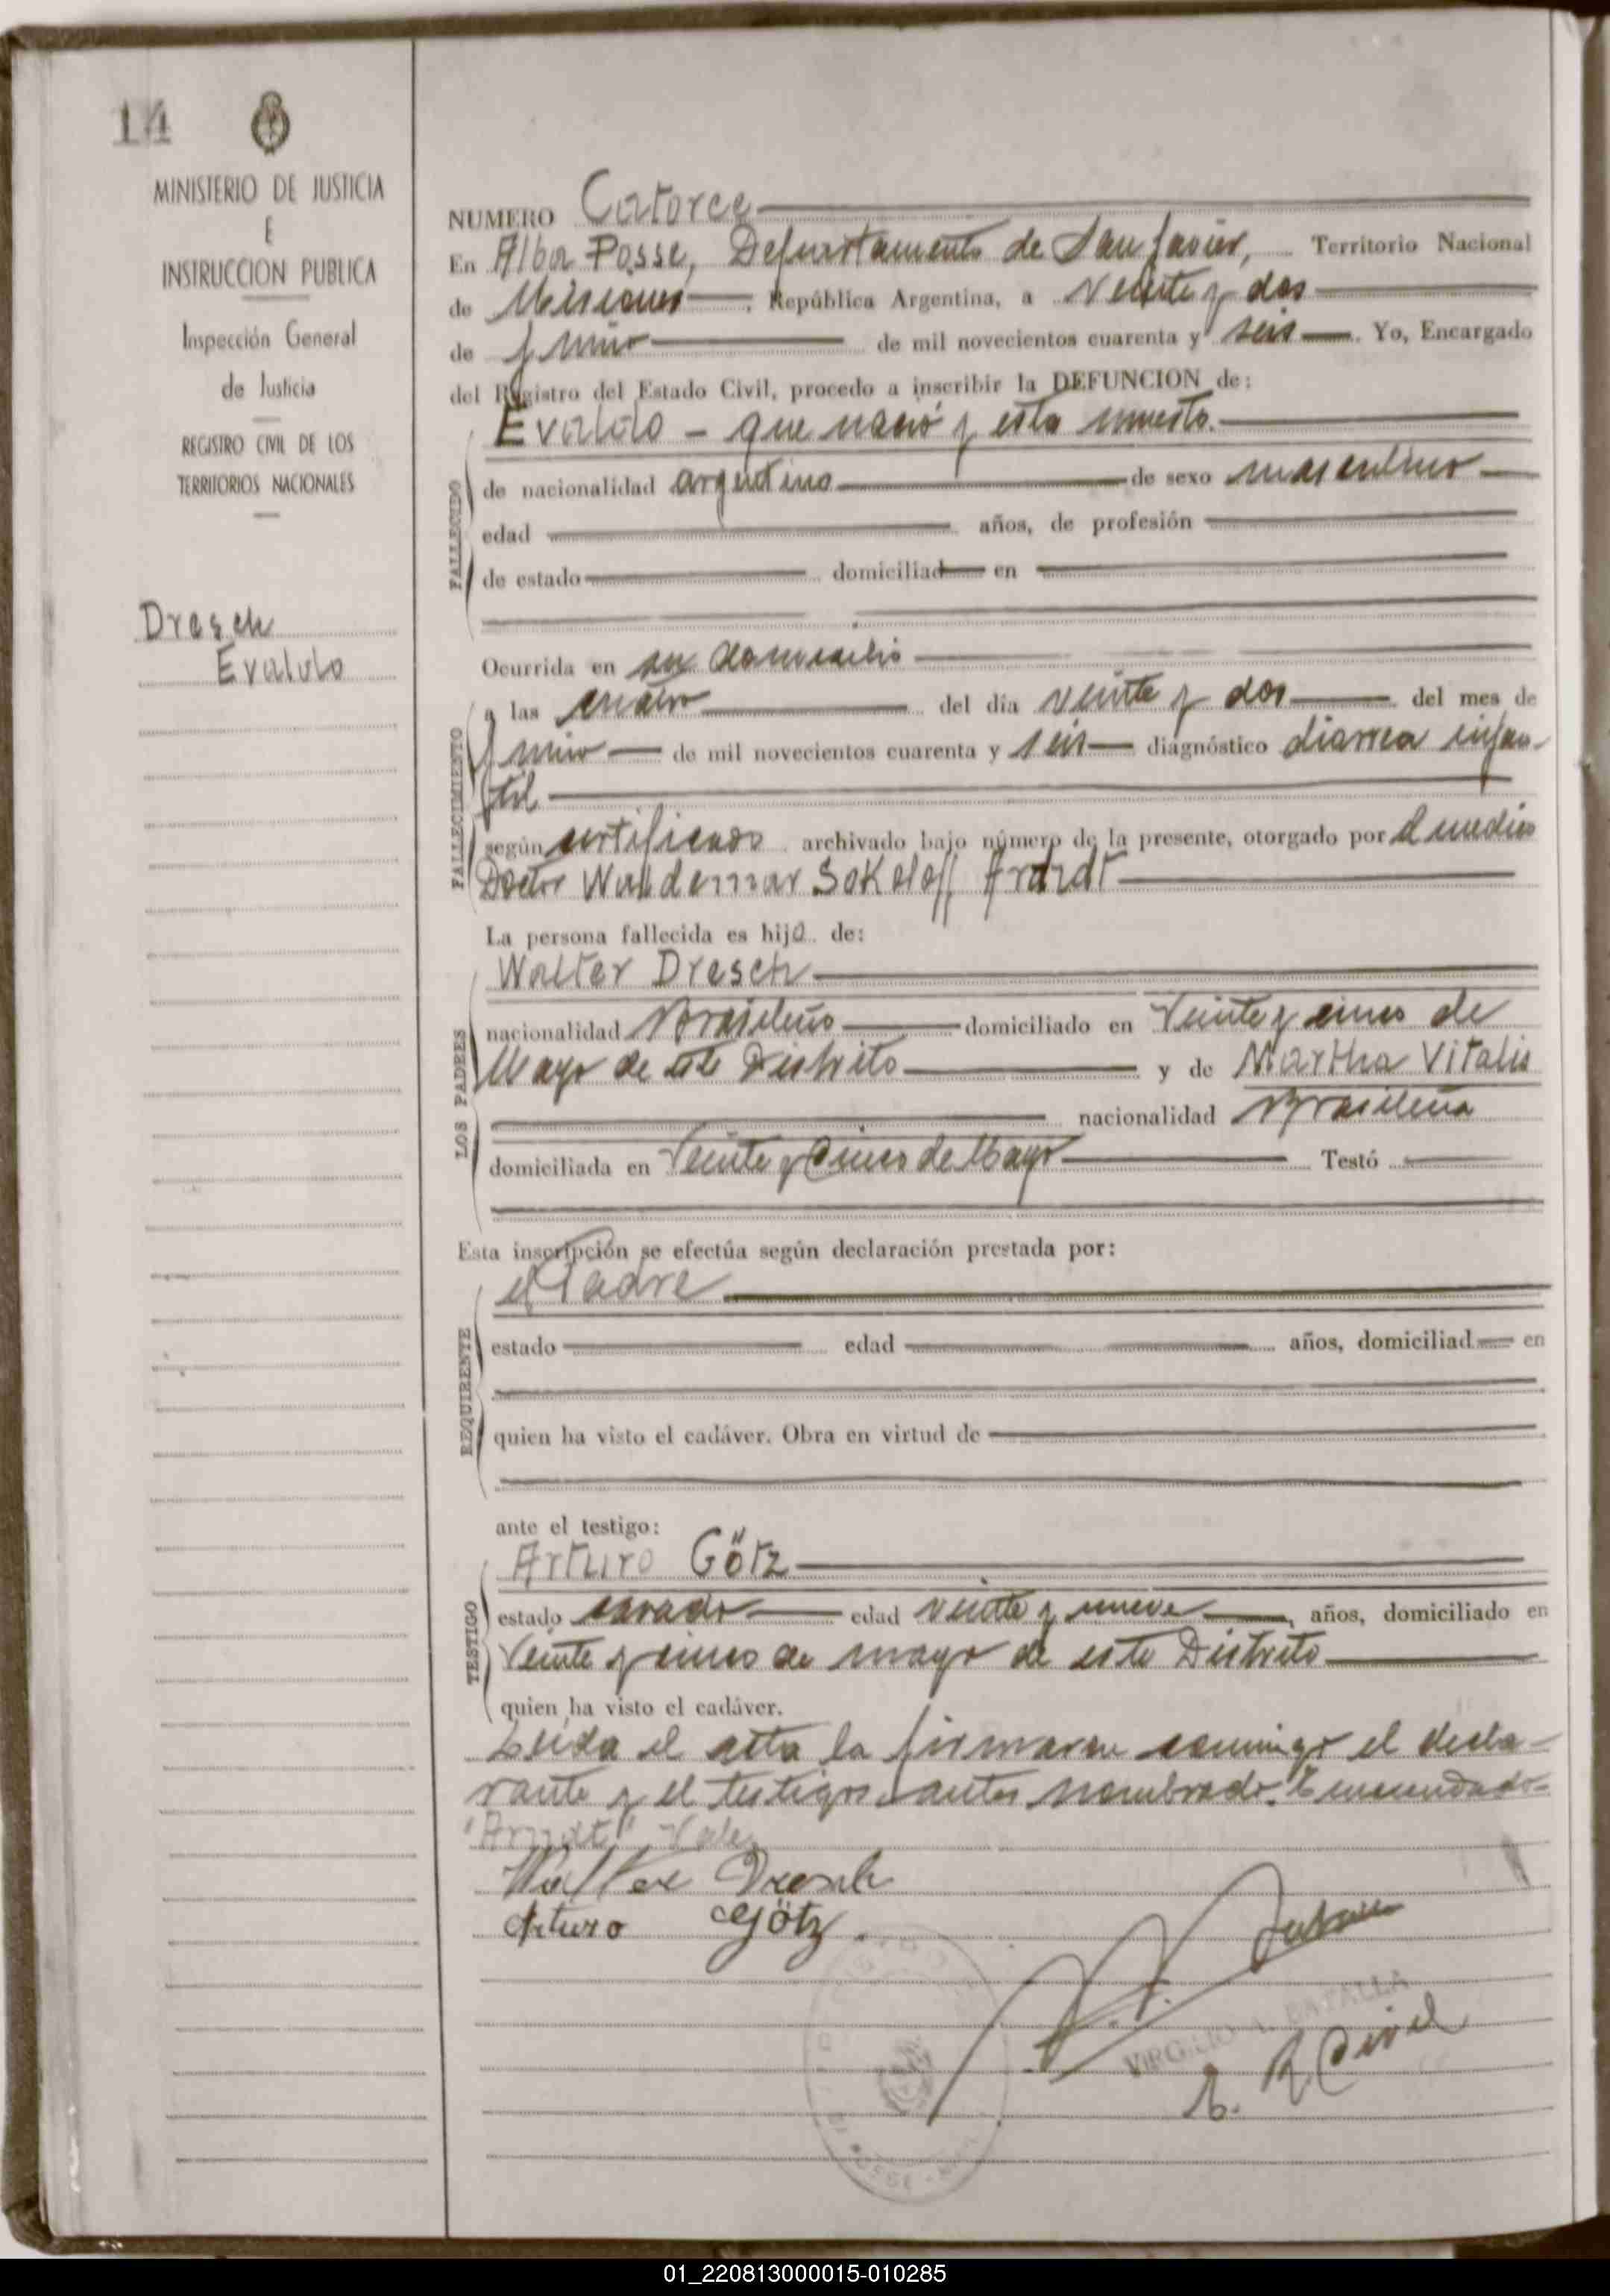 14
MINISTERIO DE JUSTICIA
E
INSTRUCCION PUBLICA
Inspección General
de Justicia
REGISTRO CIVIL DE LOS
TERRITORIOS NACIONALES
Dresch
Evaldo
NUMERO Catorce
En Alba Posse, Departamento de San Javier, Territorio Nacional
de Misiones, República Argentina, a veinte y dos
de junio de mil novecientos cuarenta y seis. Yo, Encargado
del Registro del Estado Civil, procedo a inscribir la DEFUNCION de:
Evaldo - que nació y esta muerto.
FALLECIDO
de nacionalidad argentino de sexo masculino
edad años, de profesión
de estado domiciliad en
FALLECIMIENTO
Ocurrida en su domicilio
a las cuatro del día veinte y dos del mes de
junio de mil novecientos cuarenta y seis diagnóstico diarrea infan-
til
según certificado archivado bajo número de la presente, otorgado por el medico
Doctor Waldemar Sokoloff Arndt
La persona fallecida es hijo de:
LOS PADRES
Walter Dresch
nacionalidad Brasileño domiciliado en Veinte y cinco de
Mayo de este Distrito y de Martha Vitalis
nacionalidad Brasileña
domiciliada en Veinte y Cinco de Mayo Testó
Esta inscripción se efectúa según declaración prestada por:
REQUIRENTE
el Padre
estado edad años, domiciliad en
quien ha visto el cadáver. Obra en virtud de
ante el testigo:
TESTIGO
Arturo Götz
estado casado edad veinte y nueve, años, domiciliado en
Veinte y cinco de mayo de este Distrito
quien ha visto el cadáver.
Leida el acta la firmaron conmigo el decla-
rante y el testigo antes nombrado. Enmendado-
"Arndt" Vale
Walter Dresch
Arturo Götz.
VIRGILIO A. BATALLA
E. R. Civil
01_220813000015-010285